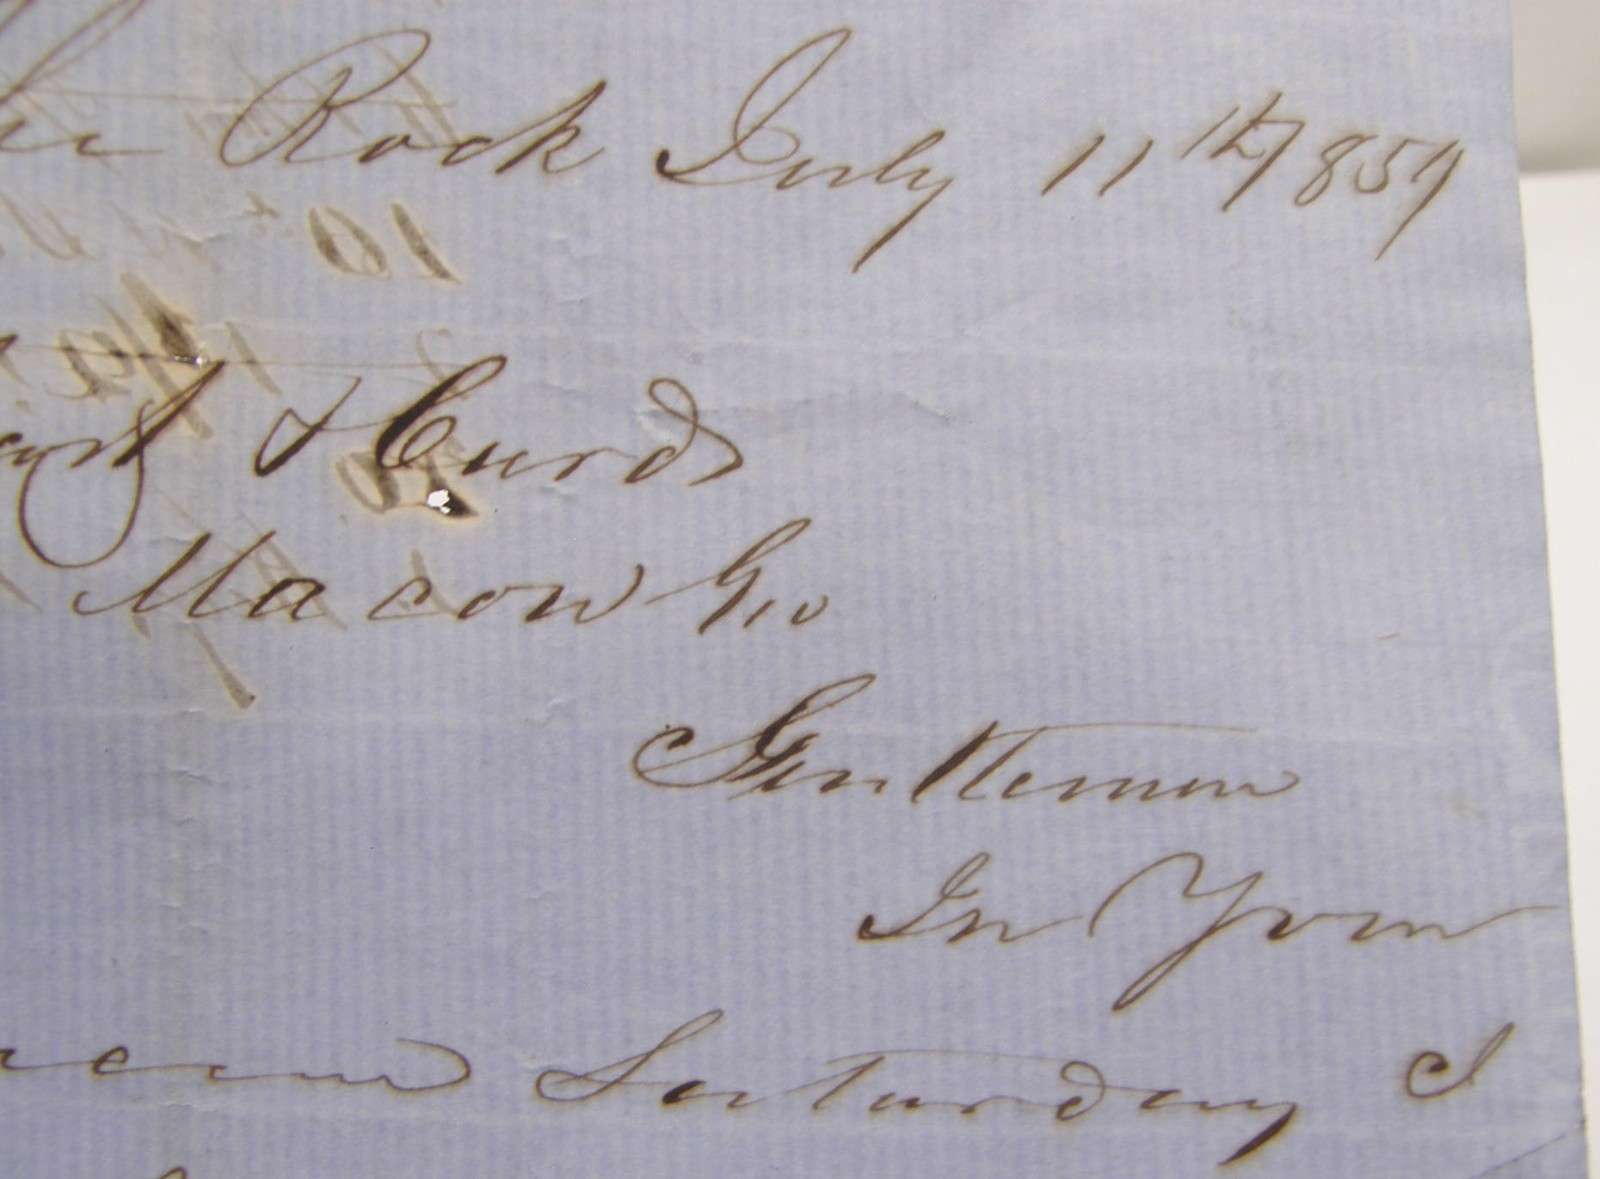 Rock July 11th 1859
& Curd
Macon Geo
Gentlemen
In Your
Saturday I